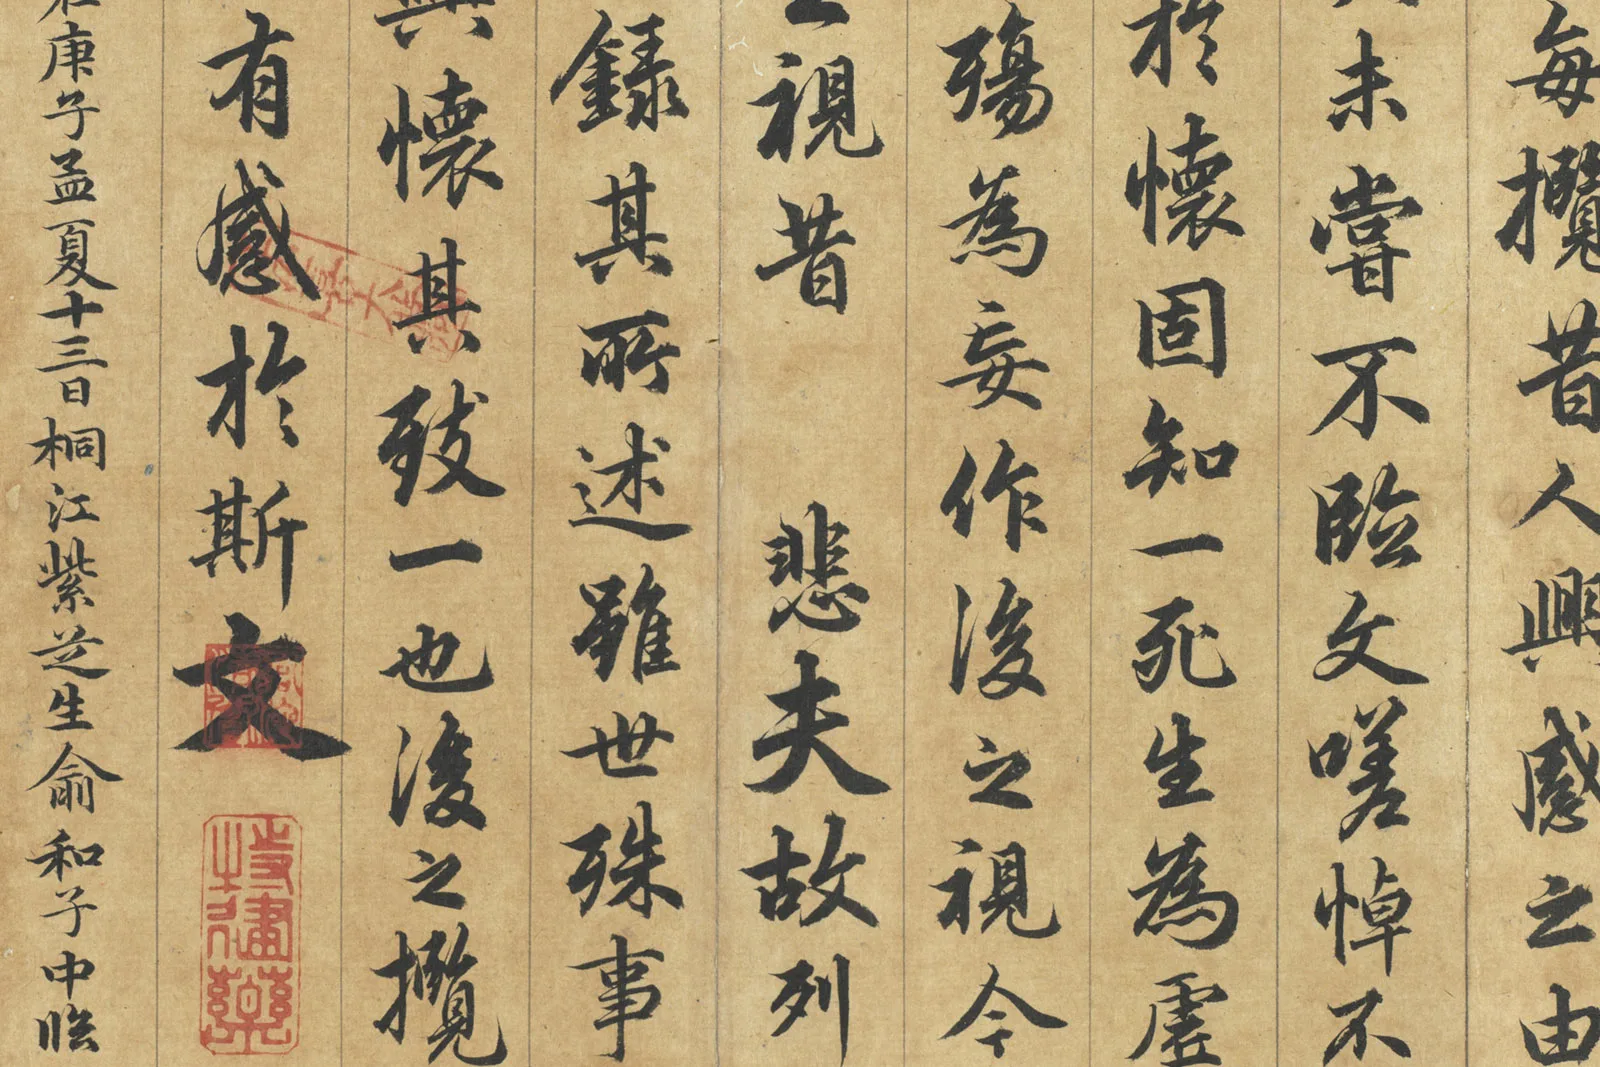 每攬昔人興感之由
未嘗不臨文嗟悼不
於懷固知一死生為虛
殤為妄作後之視今
視昔 悲夫故列
錄其所述雖世殊事
興懷其致一也後之攬
有感於斯文
庚子孟夏十三日桐江紫芝生俞和子中臨